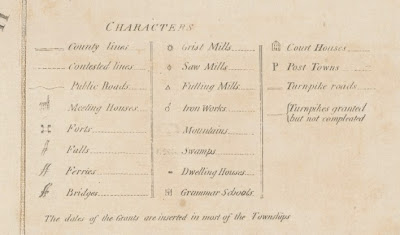 CHARACTERS
County lines
Contested lines
Public Roads
Meeting Houses
Forts
Falls
Ferries
Bridges
Grist Mills
Saw Mills
Fulling Mills
Iron Works
Mountains
Swamps
Dwelling Houses
Grammar Schools
Court Houses
P Post Towns
Turnpike roads
Turnpikes granted
but not compleated
The dates of the Grants are inserted in most of the Townships